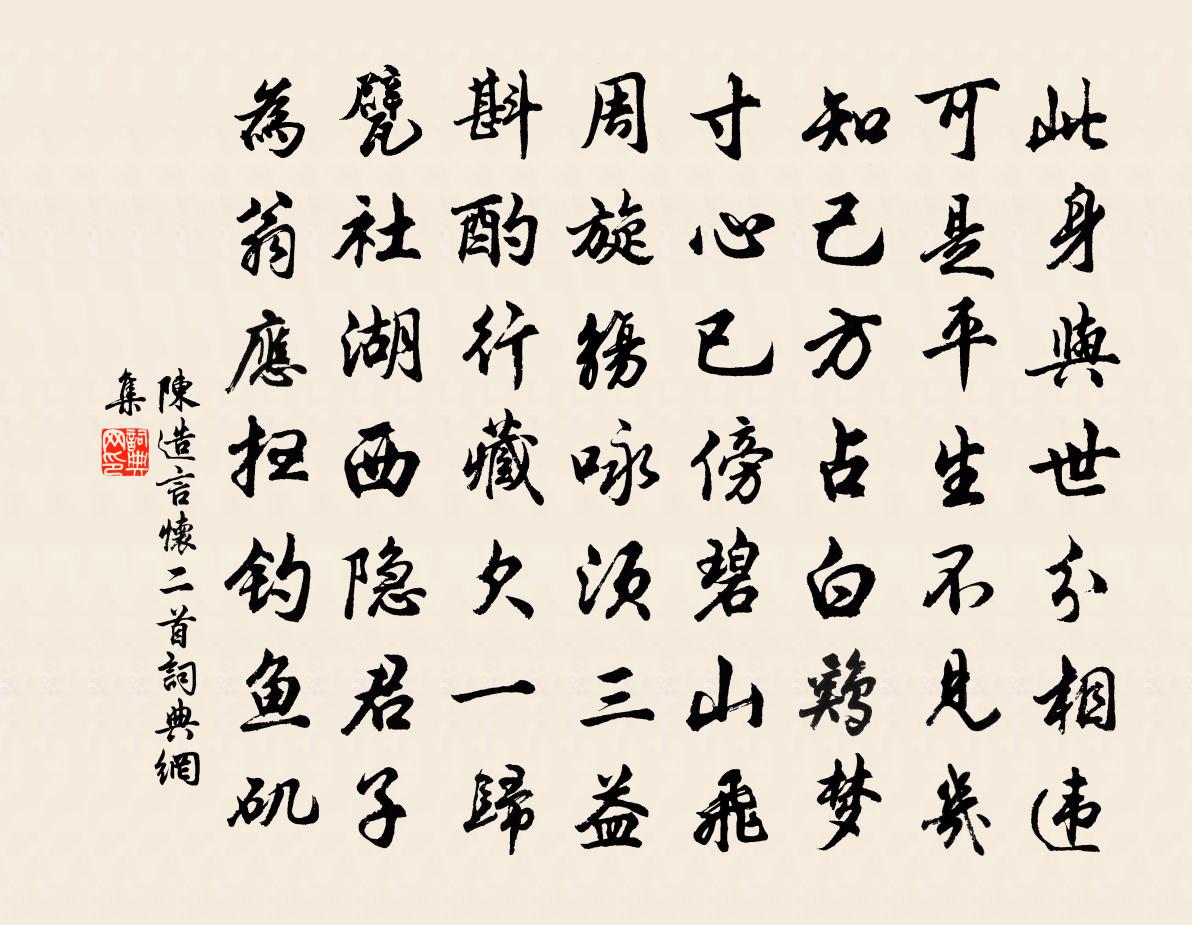 此身與世分相违
可是平生不見幾
知己方占白鷄梦
寸心已傍碧山飛
周旋觴咏須三益
斟酌行藏欠一歸
甓社湖西隐君子
為翁應扫钓鱼矶
陳造言懷二首詞典網
集
詞典
网印